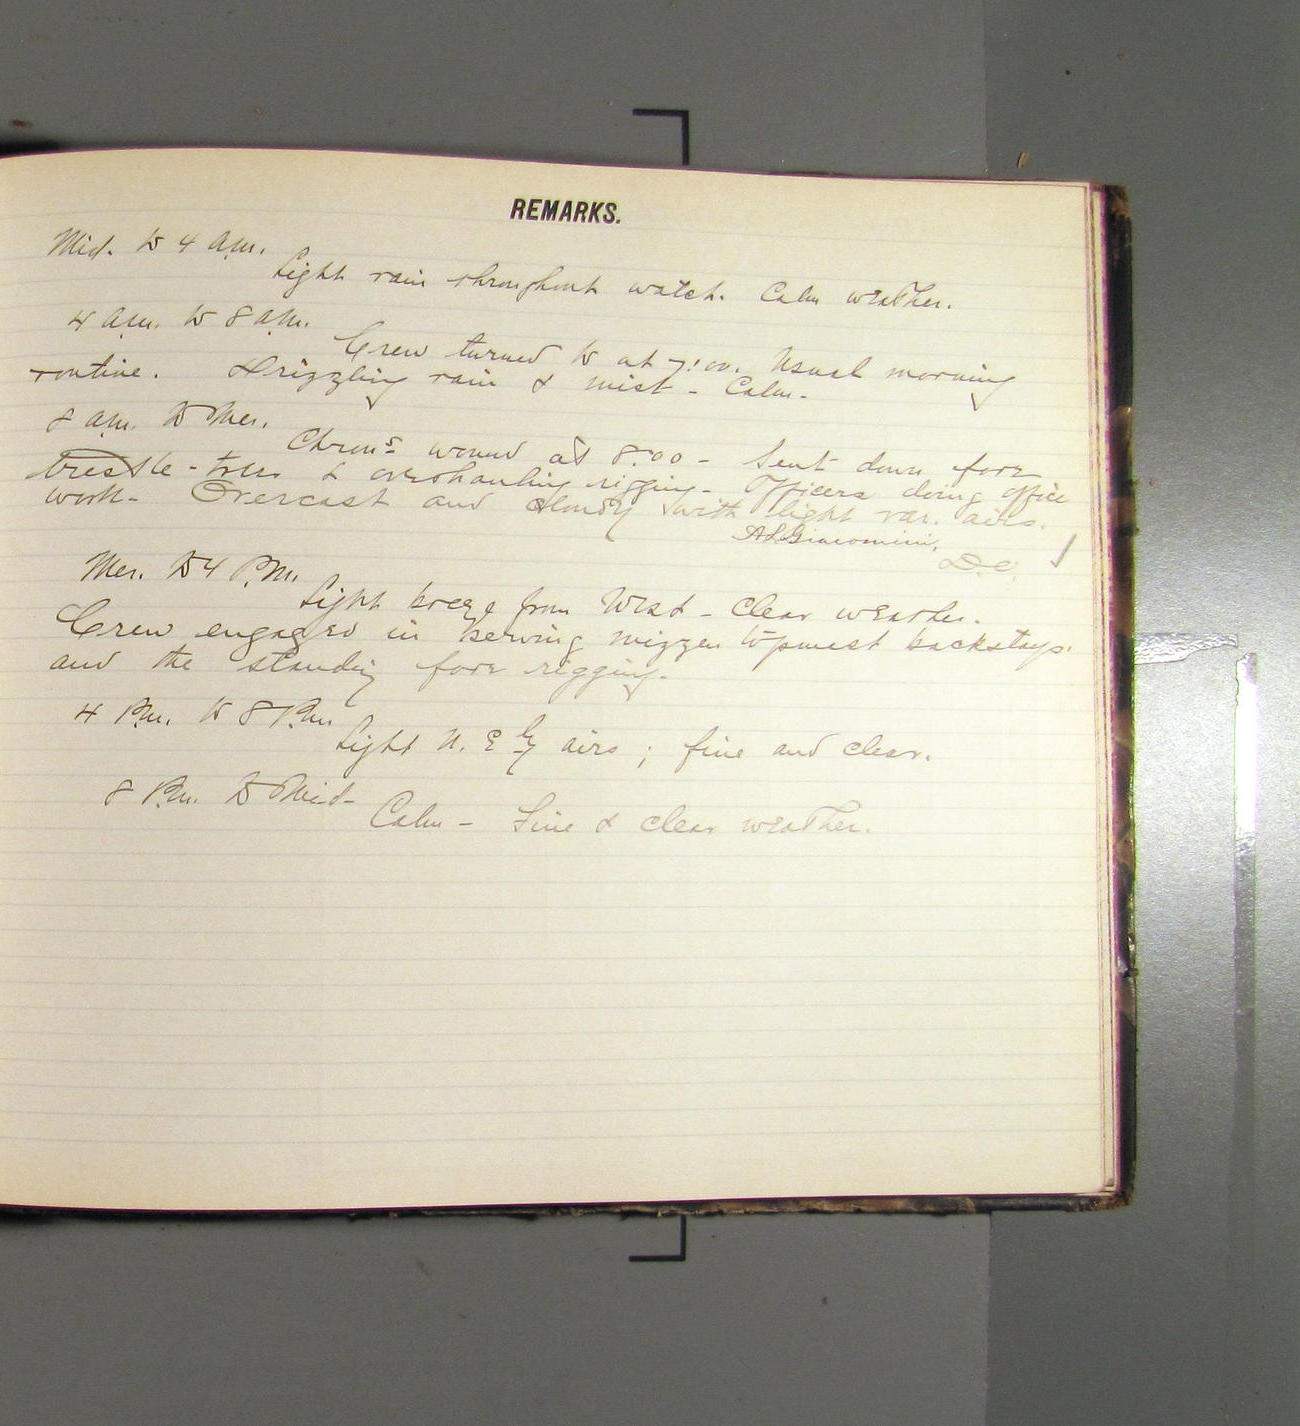 REMARKS.
Mid. to 4 a.m.
Light rain throughout watch. Calm weather.
4 a.m. to 8 a.m.
Crew turned to at 7:00. Usual morning
routine. Drizzling rain & mist - Calm.
8 a.m. to Mer.
Chrons wound at 8:00 - Sent down fore
trestle-trees & overhauling rigging - Officers doing office
work - Overcast and cloudy with light var. airs.
A L Giacomini,
D.O.
Mer. to 4 P.M.
Light breeze from West - Clear weather.
Crew engaged in serving mizzen topmast backstays
and the standing fore rigging.
4 P.m. to 8 P.m.
Light N. E ly airs ; fine and clear.
8 P.m. to Mid-
Calm - Fine & clear weather.